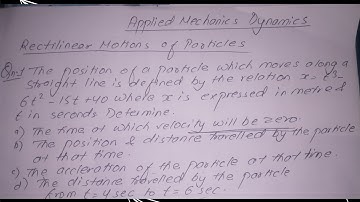 Applied Mechanics Dynamics
Rectilinear Motions of Particles
Qno1 The position of a particle which moves along a
straight line is defined by the relation x = t³-
6t² - 15t + 40 where x is expressed in metre &
t in seconds Determine.
a) The time at which velocity will be zero
b) The position & distance travelled by the particle
at that time.
c) The accleration of the particle at that time.
d) The distance travelled by the particle
from t = 4 sec to t = 6 sec.